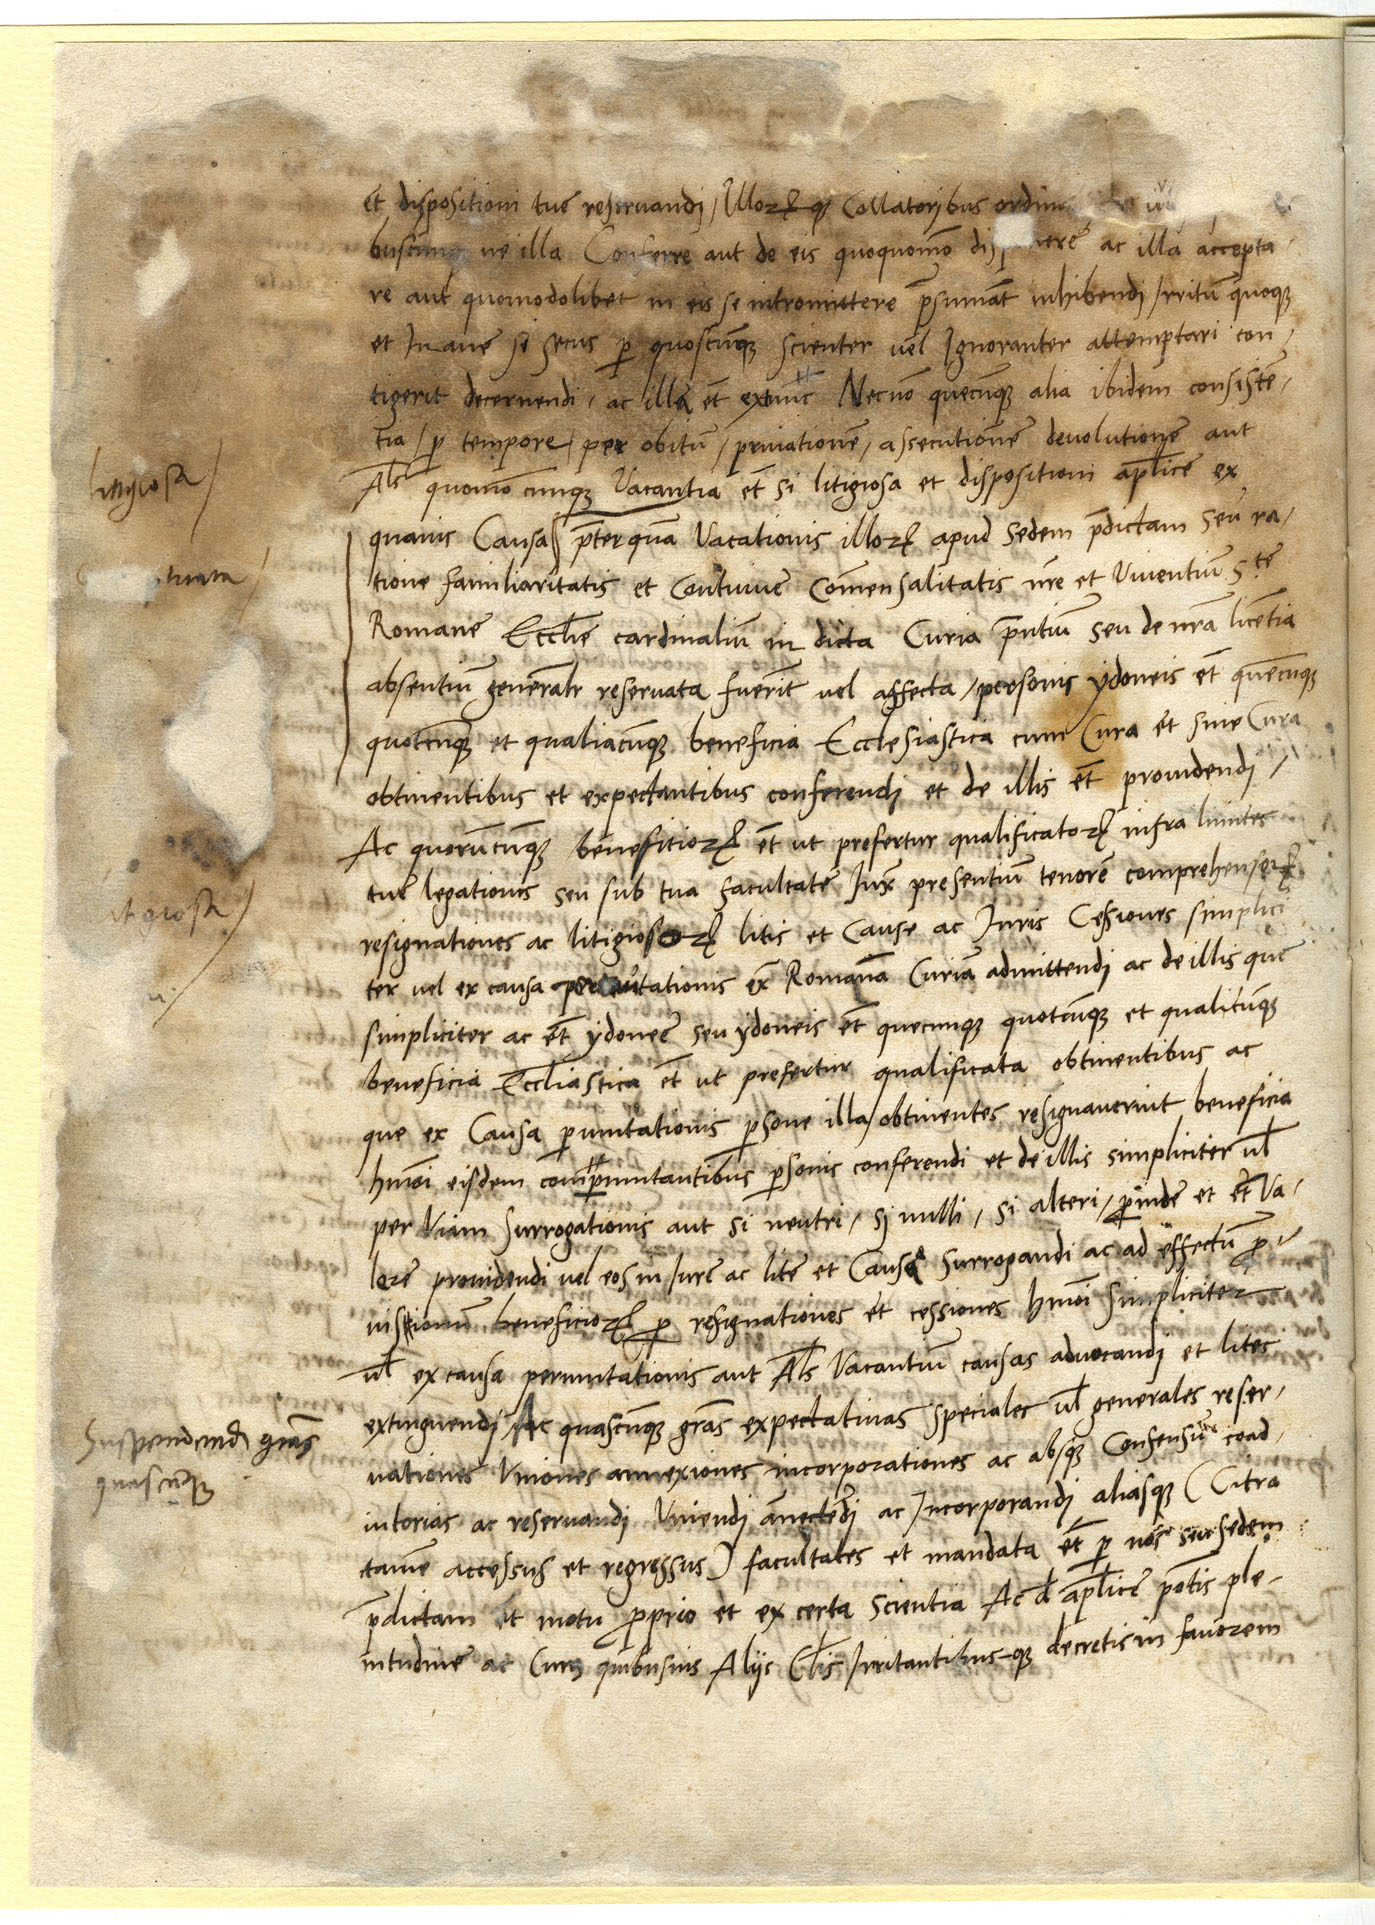 et dispositioni tue reseruandi / Illorꝝ qꝫ Collatoribus ordin
ne illa Conferre aut de eis quoquomo ac illa accepta-
re aut quomodolibet in eis se intromittere p̄sumāt inhibendi / Irritū quoqꝫ
et Inane si secus ꝑ quoscūqꝫ scienter vel Ignoranter attemptari con-
tigerit decernendi / ac illa et̄ extunc Necno quecūqꝫ alia ibidem consistē-
tia / ꝑ tempore / per obitū / priuationē / assecutionē deuolutionē aut
Al̄s quomo cunqꝫ Vacantia et̄ si litigiosa et dispositioni ap̄lice ex
quauis Causa p̄terquā Vacationis illorꝝ apud Sedem p̄dictam seu ra-
tione familiaritatis et Continue Com̄ensalitatis nr̄e et Viuentiū S. te
Romane Eccl̄ie cardinaliū in dicta Curia p̄ntiū seu de nr̄a licētia
absentiū generalr̄ reseruata fuer̄it vel affecta / personis ydoneis et̄ quēcūqꝫ
quotcūqꝫ et qualiacūqꝫ beneficia Ecclesiastica cum Cura et sine Cura
obtinentibus et expectantibus conferendi et de illis et̄ prouidendi /
Ac quorūcūqꝫ benefitiorꝝ et̄ ut prefertur qualificatorꝝ infra limites
tue legationis seu sub tua facultate Iux̄ presentiū tenorē comprehensorꝝ
resignationes ac litigiosorꝝ litis et Cause ac Iuris Cessiones simplici
ter vel ex causa permutationis ex̄ Romanā Curiā admittendi ac de illis que
simpliciter ac et̄ ydonee seu ydoneis et̄ quecunqꝫ quotcūqꝫ et qualitcūqꝫ
beneficia Eccl̄iastica et̄ ut prefertur qualificata obtinentibus ac
que ex Causa ꝑmutationis ꝑsone illa / obtinentes resignauerint beneficia
hmōi eisdem comꝑmutantibus ꝑsonis conferendi et de illis simpliciter ul̄
per Viam Surrogationis aut si neutri / si nulli / si alteri / ꝑinde et et̄ Va-
lore prouidendi vel eos in Iure ac lite et Causa Surrogandi ac ad effectū ꝓ-
uisionū beneficiorꝝ ꝑ resignationes et cessiones hmōi simpliciter
ul̄ ex causa permutationis aut Al̄s Vacantiū causas aduocandi et lites
extinguendi / Ac quascūqꝫ gr̄as expectatiuas speciales ul̄ generales reser-
uationes Vniones annexiones incorporationes ac absqꝫ Consensu coad-
iutorias ac reseruandi Vniendi an̄ectēdi ac Incorporandi aliasqꝫ (Citra
tame accessus et regressus) facultates et mandata et̄ ꝑ nos seu sedem
p̄dictam et̄ motu ꝓprio et ex certa Scientia Ac d̄ ap̄lice potīs ple-
nitudine ac Cum quibusuis Alijs Cl̄is Irritantibusqꝫ decretis in fauorem
litigiosa
Suspendendi gr̄as
quascūqꝫ